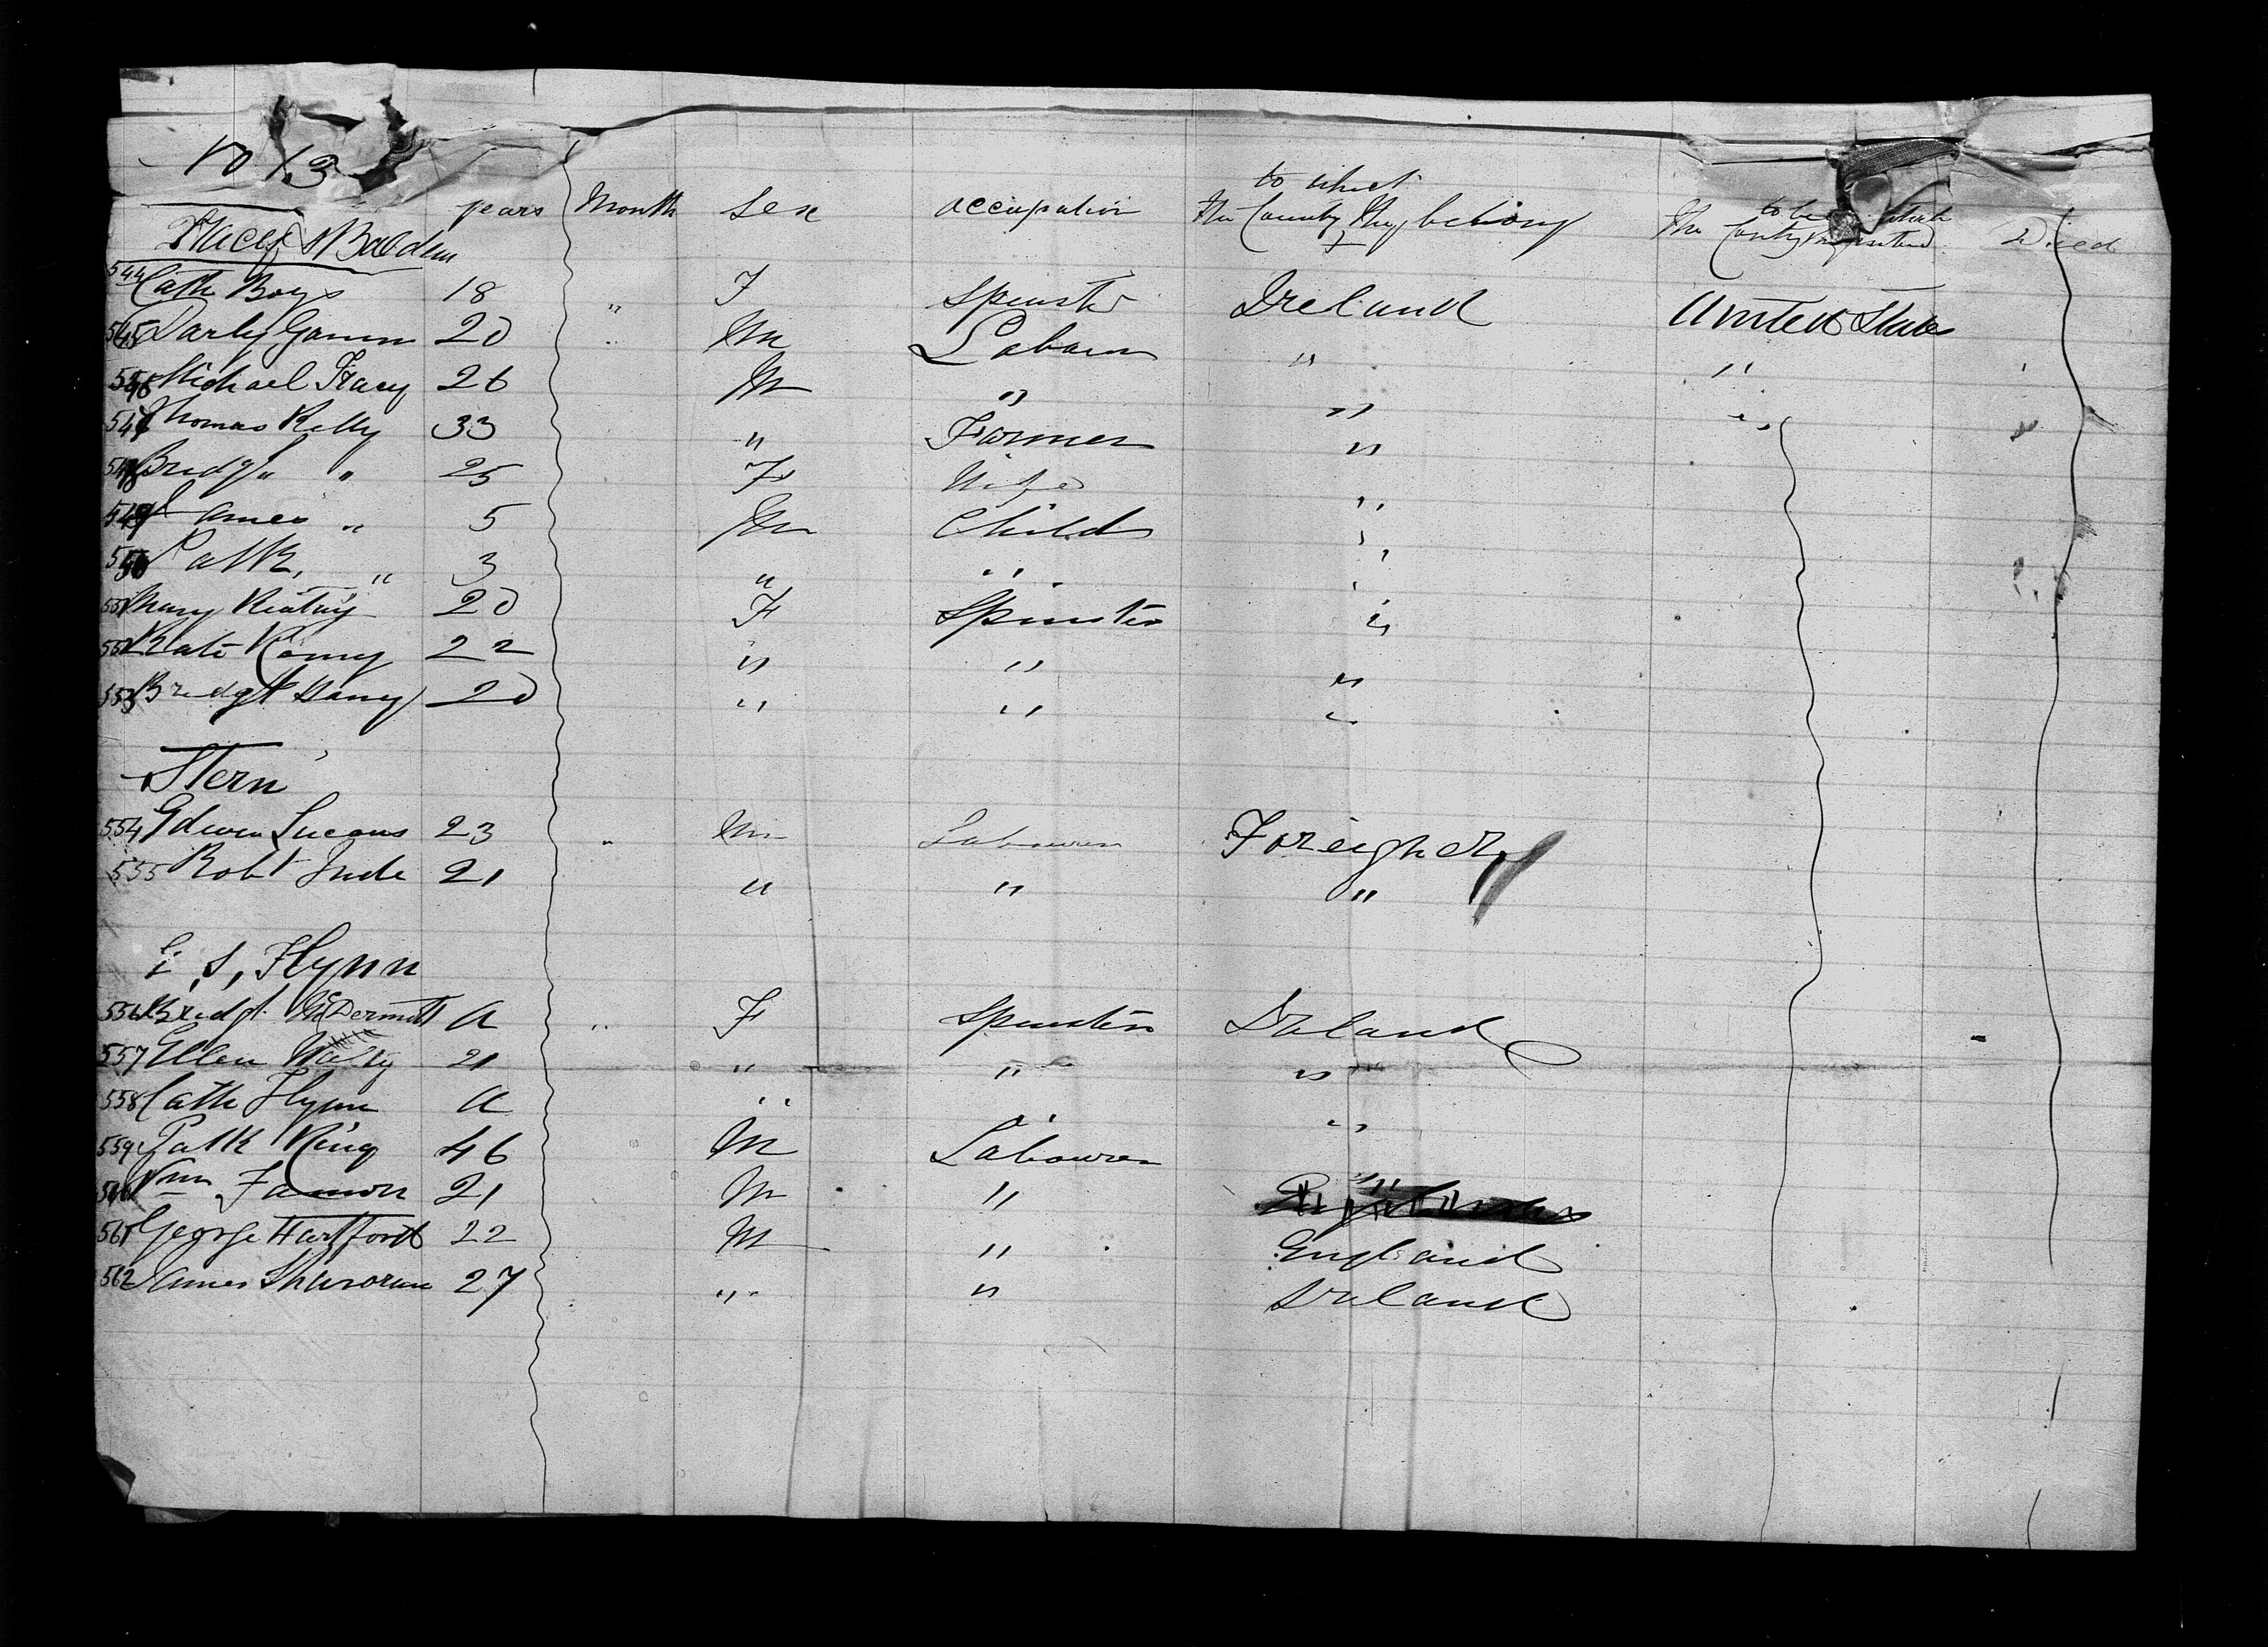 No 13
to which
years Month Sex occupation the Country they belong The Country Died
544 Cath Boys 18 " F Spinster Ireland United States
545 Darby 20 " M Labourer " "
546 Michael 26 M " " "
547 Thomas Kelly 33 " Farmer "
548 Bridgt " 25 F Wife "
549 James " 5 M Child "
550 Patk, " 3 " " "
551 Mary Keating 20 F Spinster "
552 Kate 22 " " "
553 Bridgt 20 " " "
Stern
554 Edwin Lucas 23 " M Labourer Foreigner
555 Robt Jude 21 " " "
S, Flynn
556 Bridgt McDermott A " F Spinster Ireland
557 Ellen 21 " " "
558 Cath Flynn A " " "
559 Patk King 46 M Labourer
560 Wm 21 M " "
561 George Hartford 22 M " England
562 James 27 " " Ireland